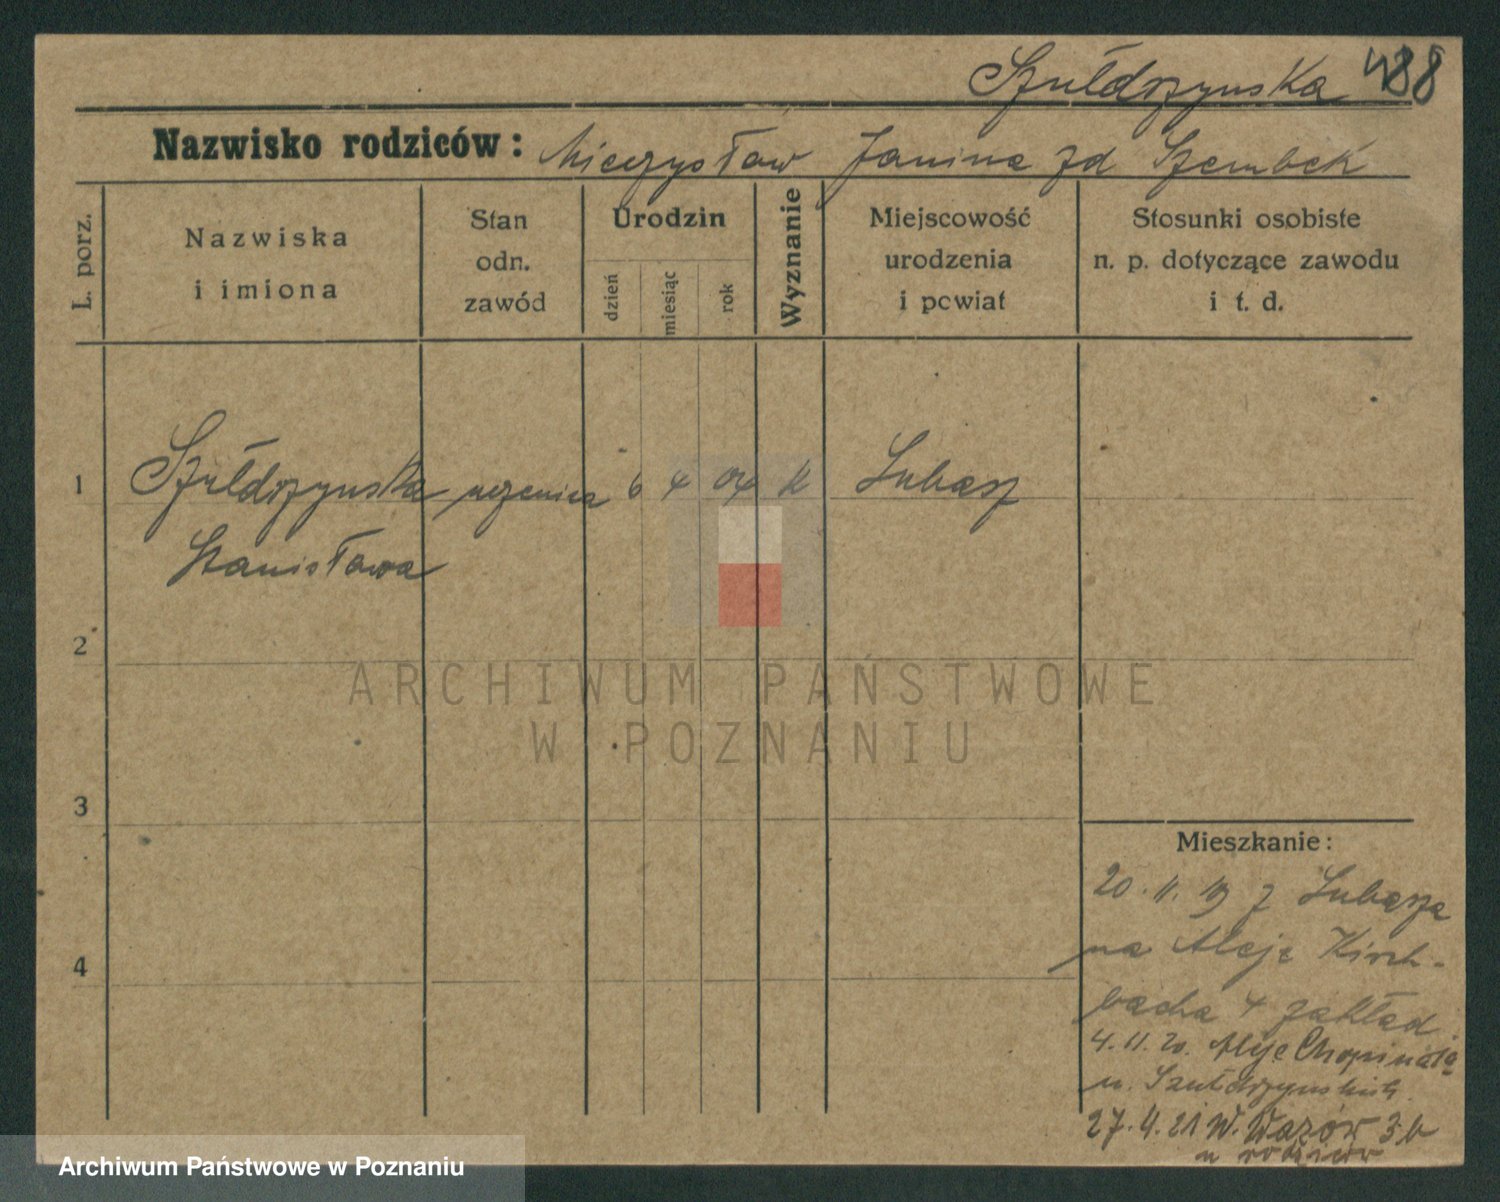 Szułdrzynska 488
Nazwisko rodziców: Mieczysław Janina zd Szembek
L. porz.
Nazwiska
i imiona
Stan
odn.
zawód
Urodzin
dzień
miesiąc
rok
Wyznanie
Miejscowość
urodzenia
i powiat
Stosunki osobiste
n. p. dotyczące zawodu
i t. d.
1 Szułdrzynska uczenica 6 4 04 k Lubasz
Stanisława
2
3
4
ARCHIWUM PAŃSTWOWE
W POZNANIU
Mieszkanie:
20.11.19 z Lubasza
na Aleje Kirch-
bacha 4 zakład
4.11.20. Aleje Chopina
u. Szułdrzynskich.
27.4.21 W. Wazów 3b
u rodziców
Archiwum Państwowe w Poznaniu